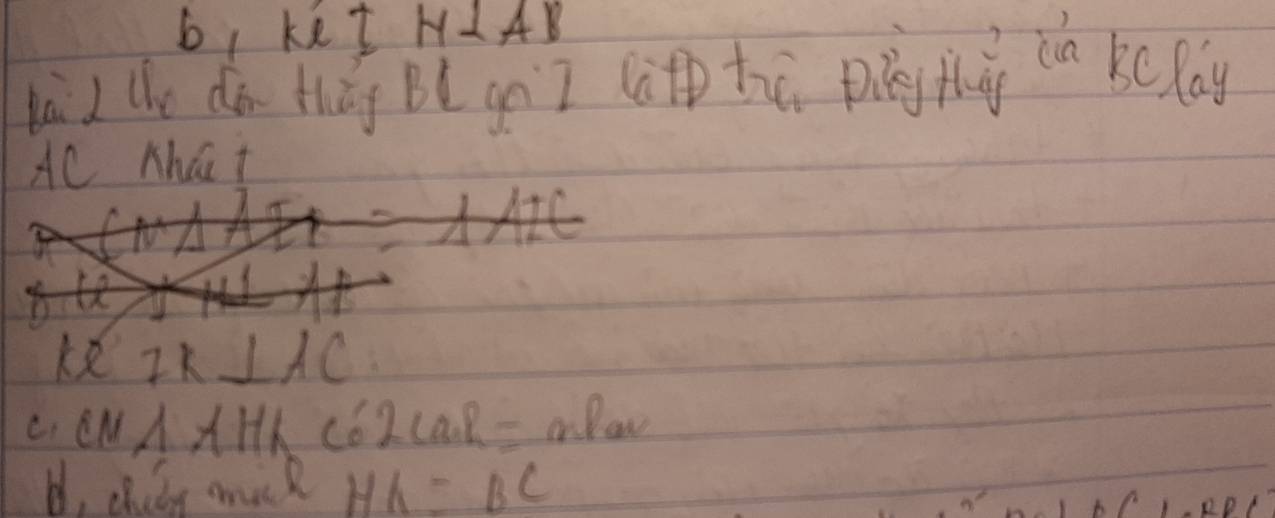 b, kẻ I H ⊥ AB
bài 2 Cho đoạn thẳng BC gọi I là TĐ trên Đường thẳng của BC lấy
AC khác I
CM Δ AIB = Δ AIC
kẻ I H ⊥ AB
kẻ IK ⊥ AC
c, CM Δ AHK có 2 cạnh = nhau
d, chứng minh HK = BC